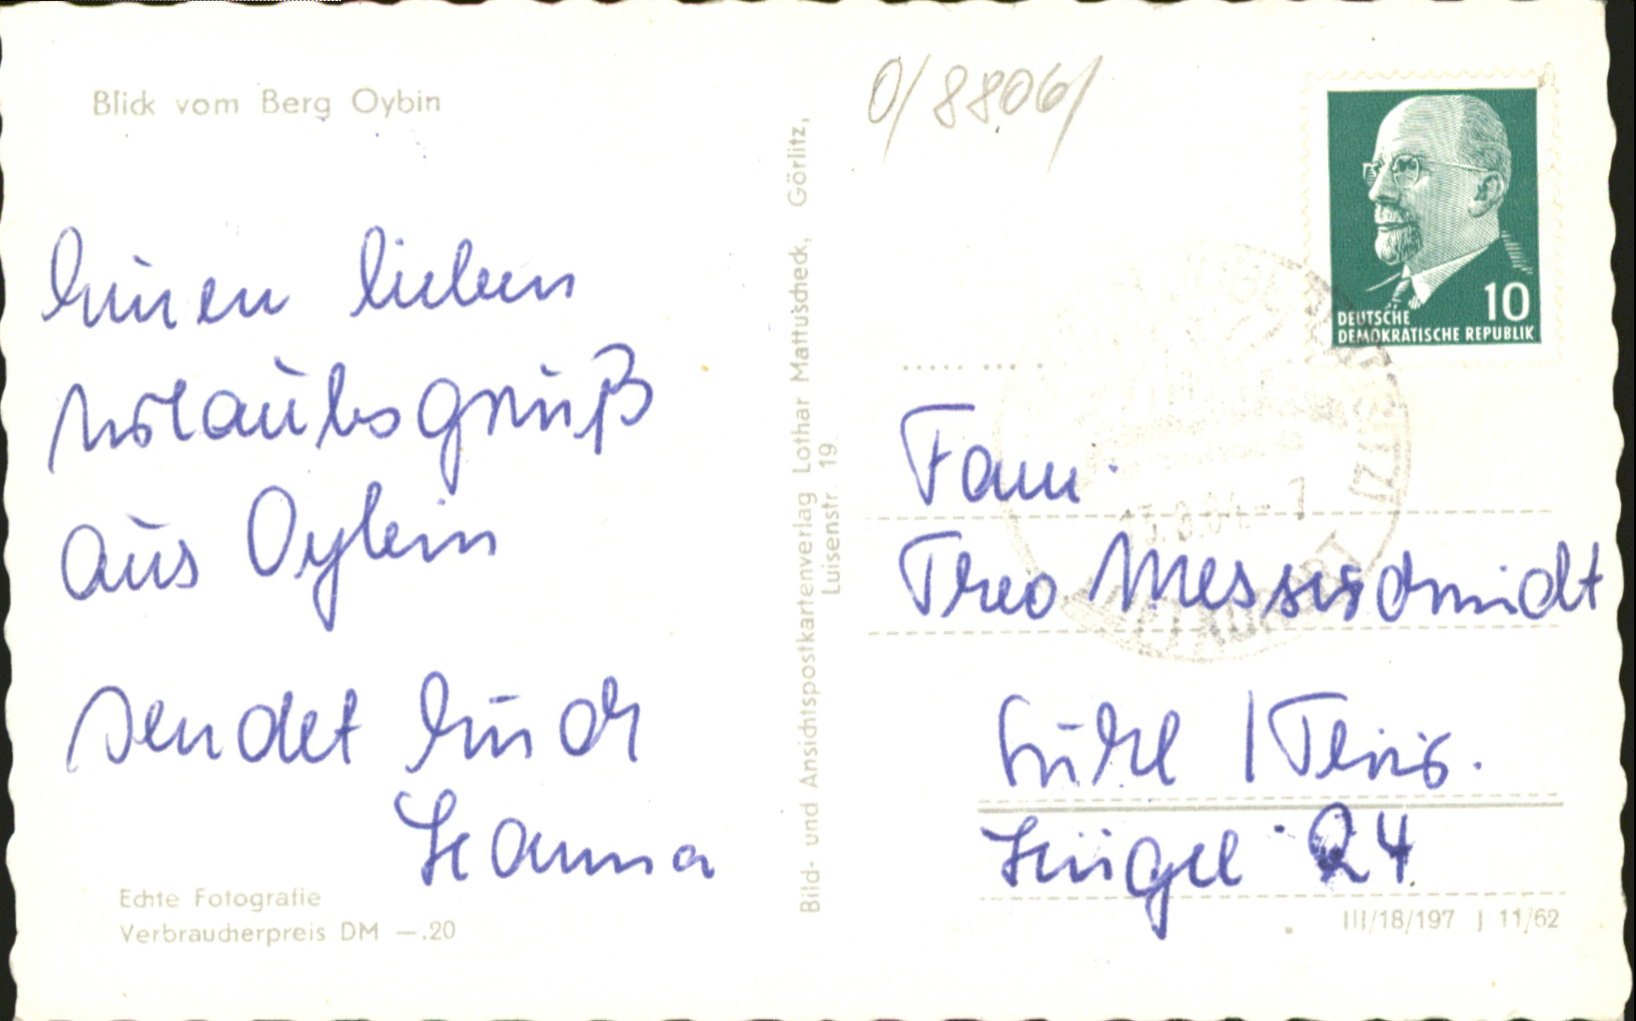 Blick vom Berg Oybin
Einen lieben
Urlaubsgruß
aus Oybin
sendet Euch
Hanna
Echte Fotografie
Verbraucherpreis DM —.20
Bild- und Ansichtspostkartenverlag Lothar Mattuscheck, Görlitz,
Luisenstr. 19
0/8806/
10
DEUTSCHE
DEMOKRATISCHE REPUBLIK
Fam.
Theo Messerschmidt
Suhl / Thür.
Hügel 24
III/18/197 J 11/62